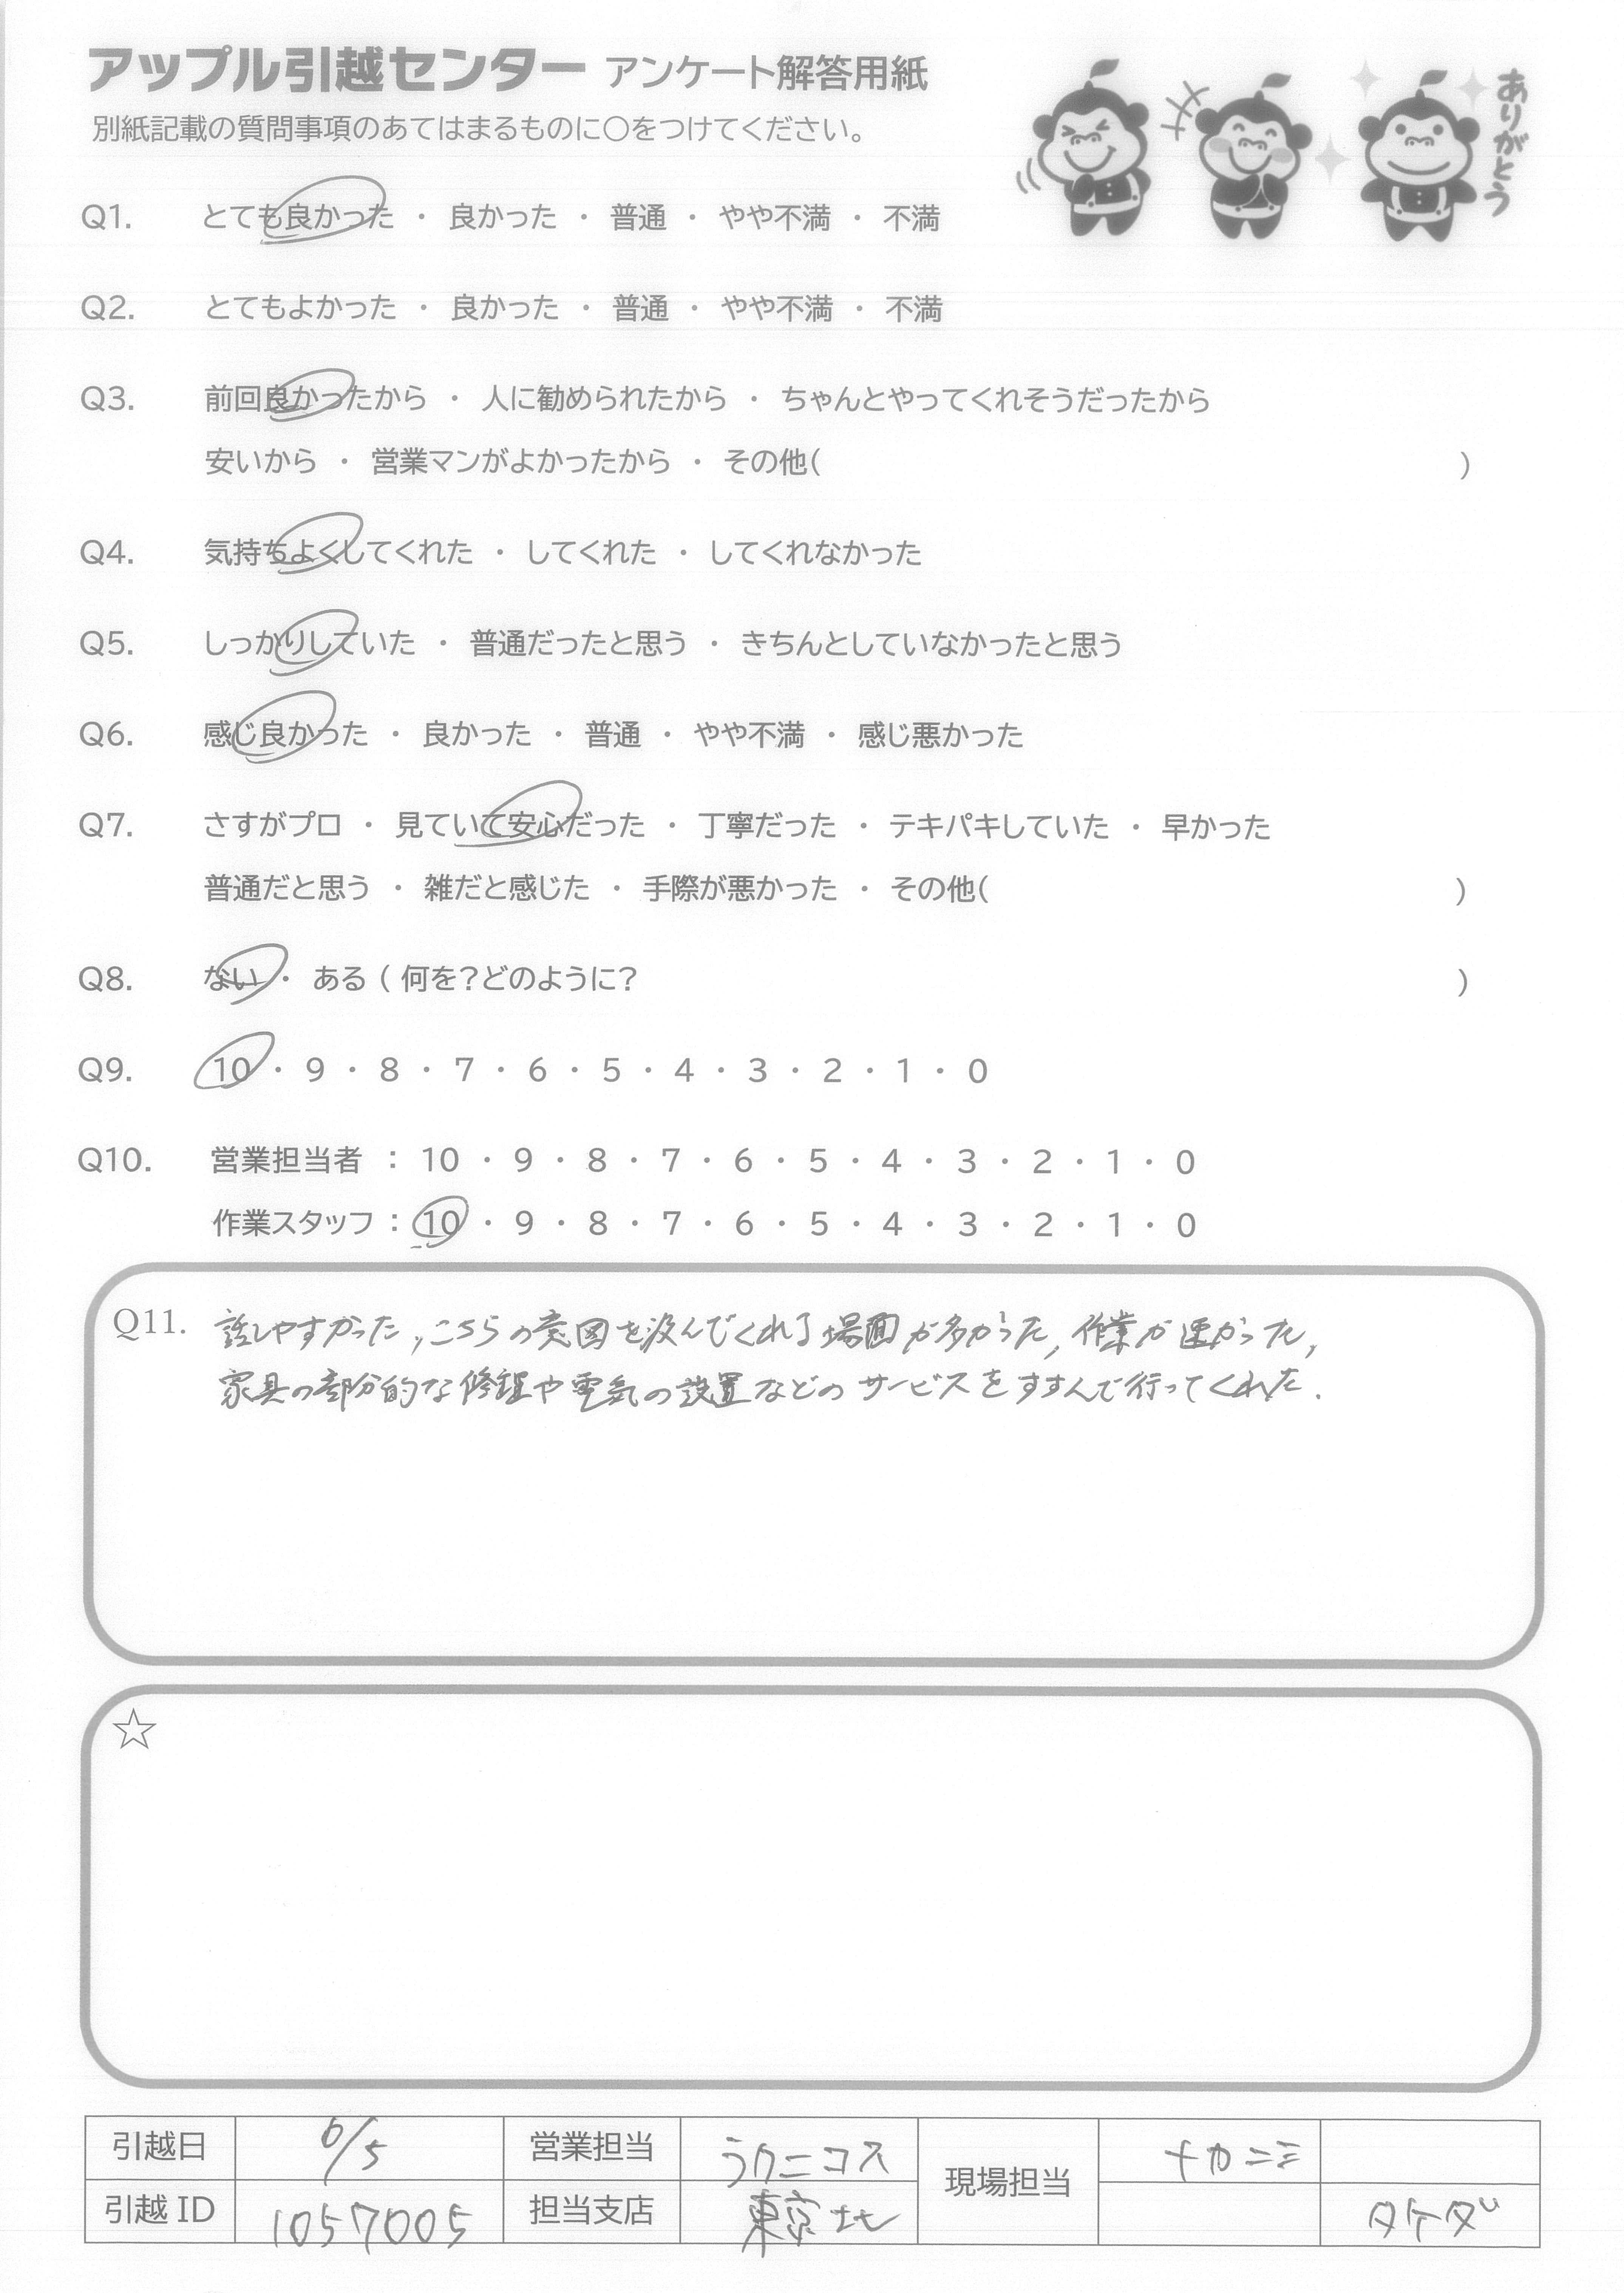 アップル引越センター アンケート解答用紙
ありがとう
別紙記載の質問事項のあてはまるものに○をつけてください。
Q1. とても良かった ・ 良かった ・ 普通 ・ やや不満 ・ 不満
Q2. とてもよかった ・ 良かった ・ 普通 ・ やや不満 ・ 不満
Q3. 前回良かったから ・ 人に勧められたから ・ ちゃんとやってくれそうだったから
安いから ・ 営業マンがよかったから ・ その他( )
Q4. 気持ちよくしてくれた ・ してくれた ・ してくれなかった
Q5. しっかりしていた ・ 普通だったと思う ・ きちんとしていなかったと思う
Q6. 感じ良かった ・ 良かった ・ 普通 ・ やや不満 ・ 感じ悪かった
Q7. さすがプロ ・ 見ていて安心だった ・ 丁寧だった ・ テキパキしていた ・ 早かった
普通だと思う ・ 雑だと感じた ・ 手際が悪かった ・ その他( )
Q8. ない ・ ある ( 何を?どのように? )
Q9. 10 ・ 9 ・ 8 ・ 7 ・ 6 ・ 5 ・ 4 ・ 3 ・ 2 ・ 1 ・ 0
Q10. 営業担当者 : 10 ・ 9 ・ 8 ・ 7 ・ 6 ・ 5 ・ 4 ・ 3 ・ 2 ・ 1 ・ 0
作業スタッフ : 10 ・ 9 ・ 8 ・ 7 ・ 6 ・ 5 ・ 4 ・ 3 ・ 2 ・ 1 ・ 0
Q11. 話しやすかった, こちらの意図を汲んでくれる場面が多かった, 作業が速かった,
家具の部分的な修理や電気の設置などのサービスをすすんで行ってくれた.
☆
引越日 6/5 営業担当 らくニコス 現場担当 ナカニシ
引越 ID 1057005 担当支店 東京北 タケダ